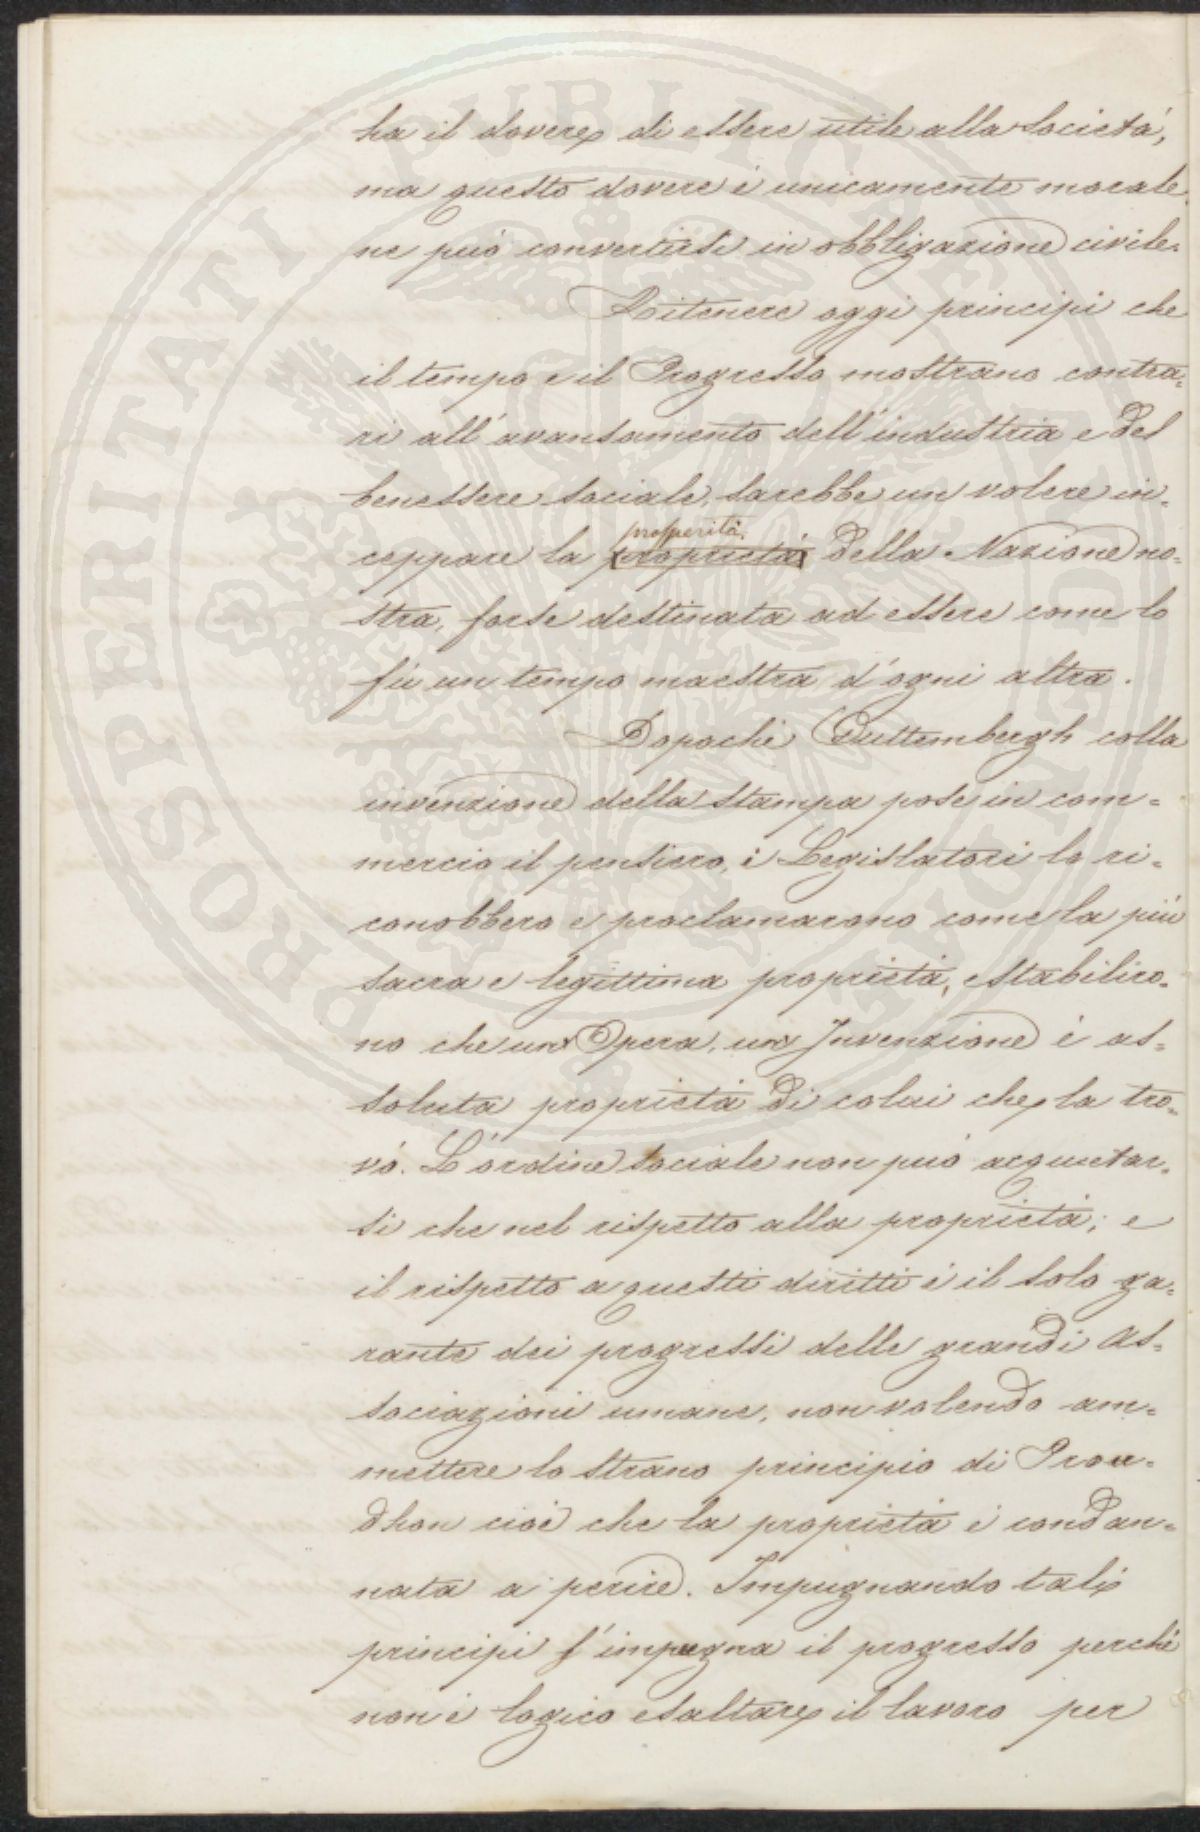 ha il dovere di essere utile alla Società,
ma questo dovere è unicamente morale
ne può convertirsi in obbligazione civile.
Ritenere oggi principi che
il tempo e il Progresso mostrano contra=
ri all'avansamento dell'industria e del
benessere sociale, sarebbe un volere in=
prosperità
ceppare la proprietà della Nazione no=
stra, forse destinata ad essere come lo
fù un tempo maestra d'ogni altra.
Dopochè Guttembergh colla
invenzione della stampa pose in com=
mercio il pensiero, i Legislatori lo ri=
conobbero e proclamarono come la più
sacra e legittima proprietà, e stabiliro=
no che un Opera, una Invenzione è as=
soluta proprietà di colui che la tro=
vò. L'ordine sociale non può acquietar=
si che nel rispetto alla proprietà; e
il rispetto a questi diritti è il solo ga=
rante dei progressi delle grandi As=
sociazioni umane, non volendo am=
mettere lo strano principio di Prou=
dhon cioè che la proprietà è condan=
nata a perire. Impugnando tali
principi s'impugna il progresso perchè
non è logico esaltare il lavoro per
PROSPERITATI PUBLICAE AUGENDAE